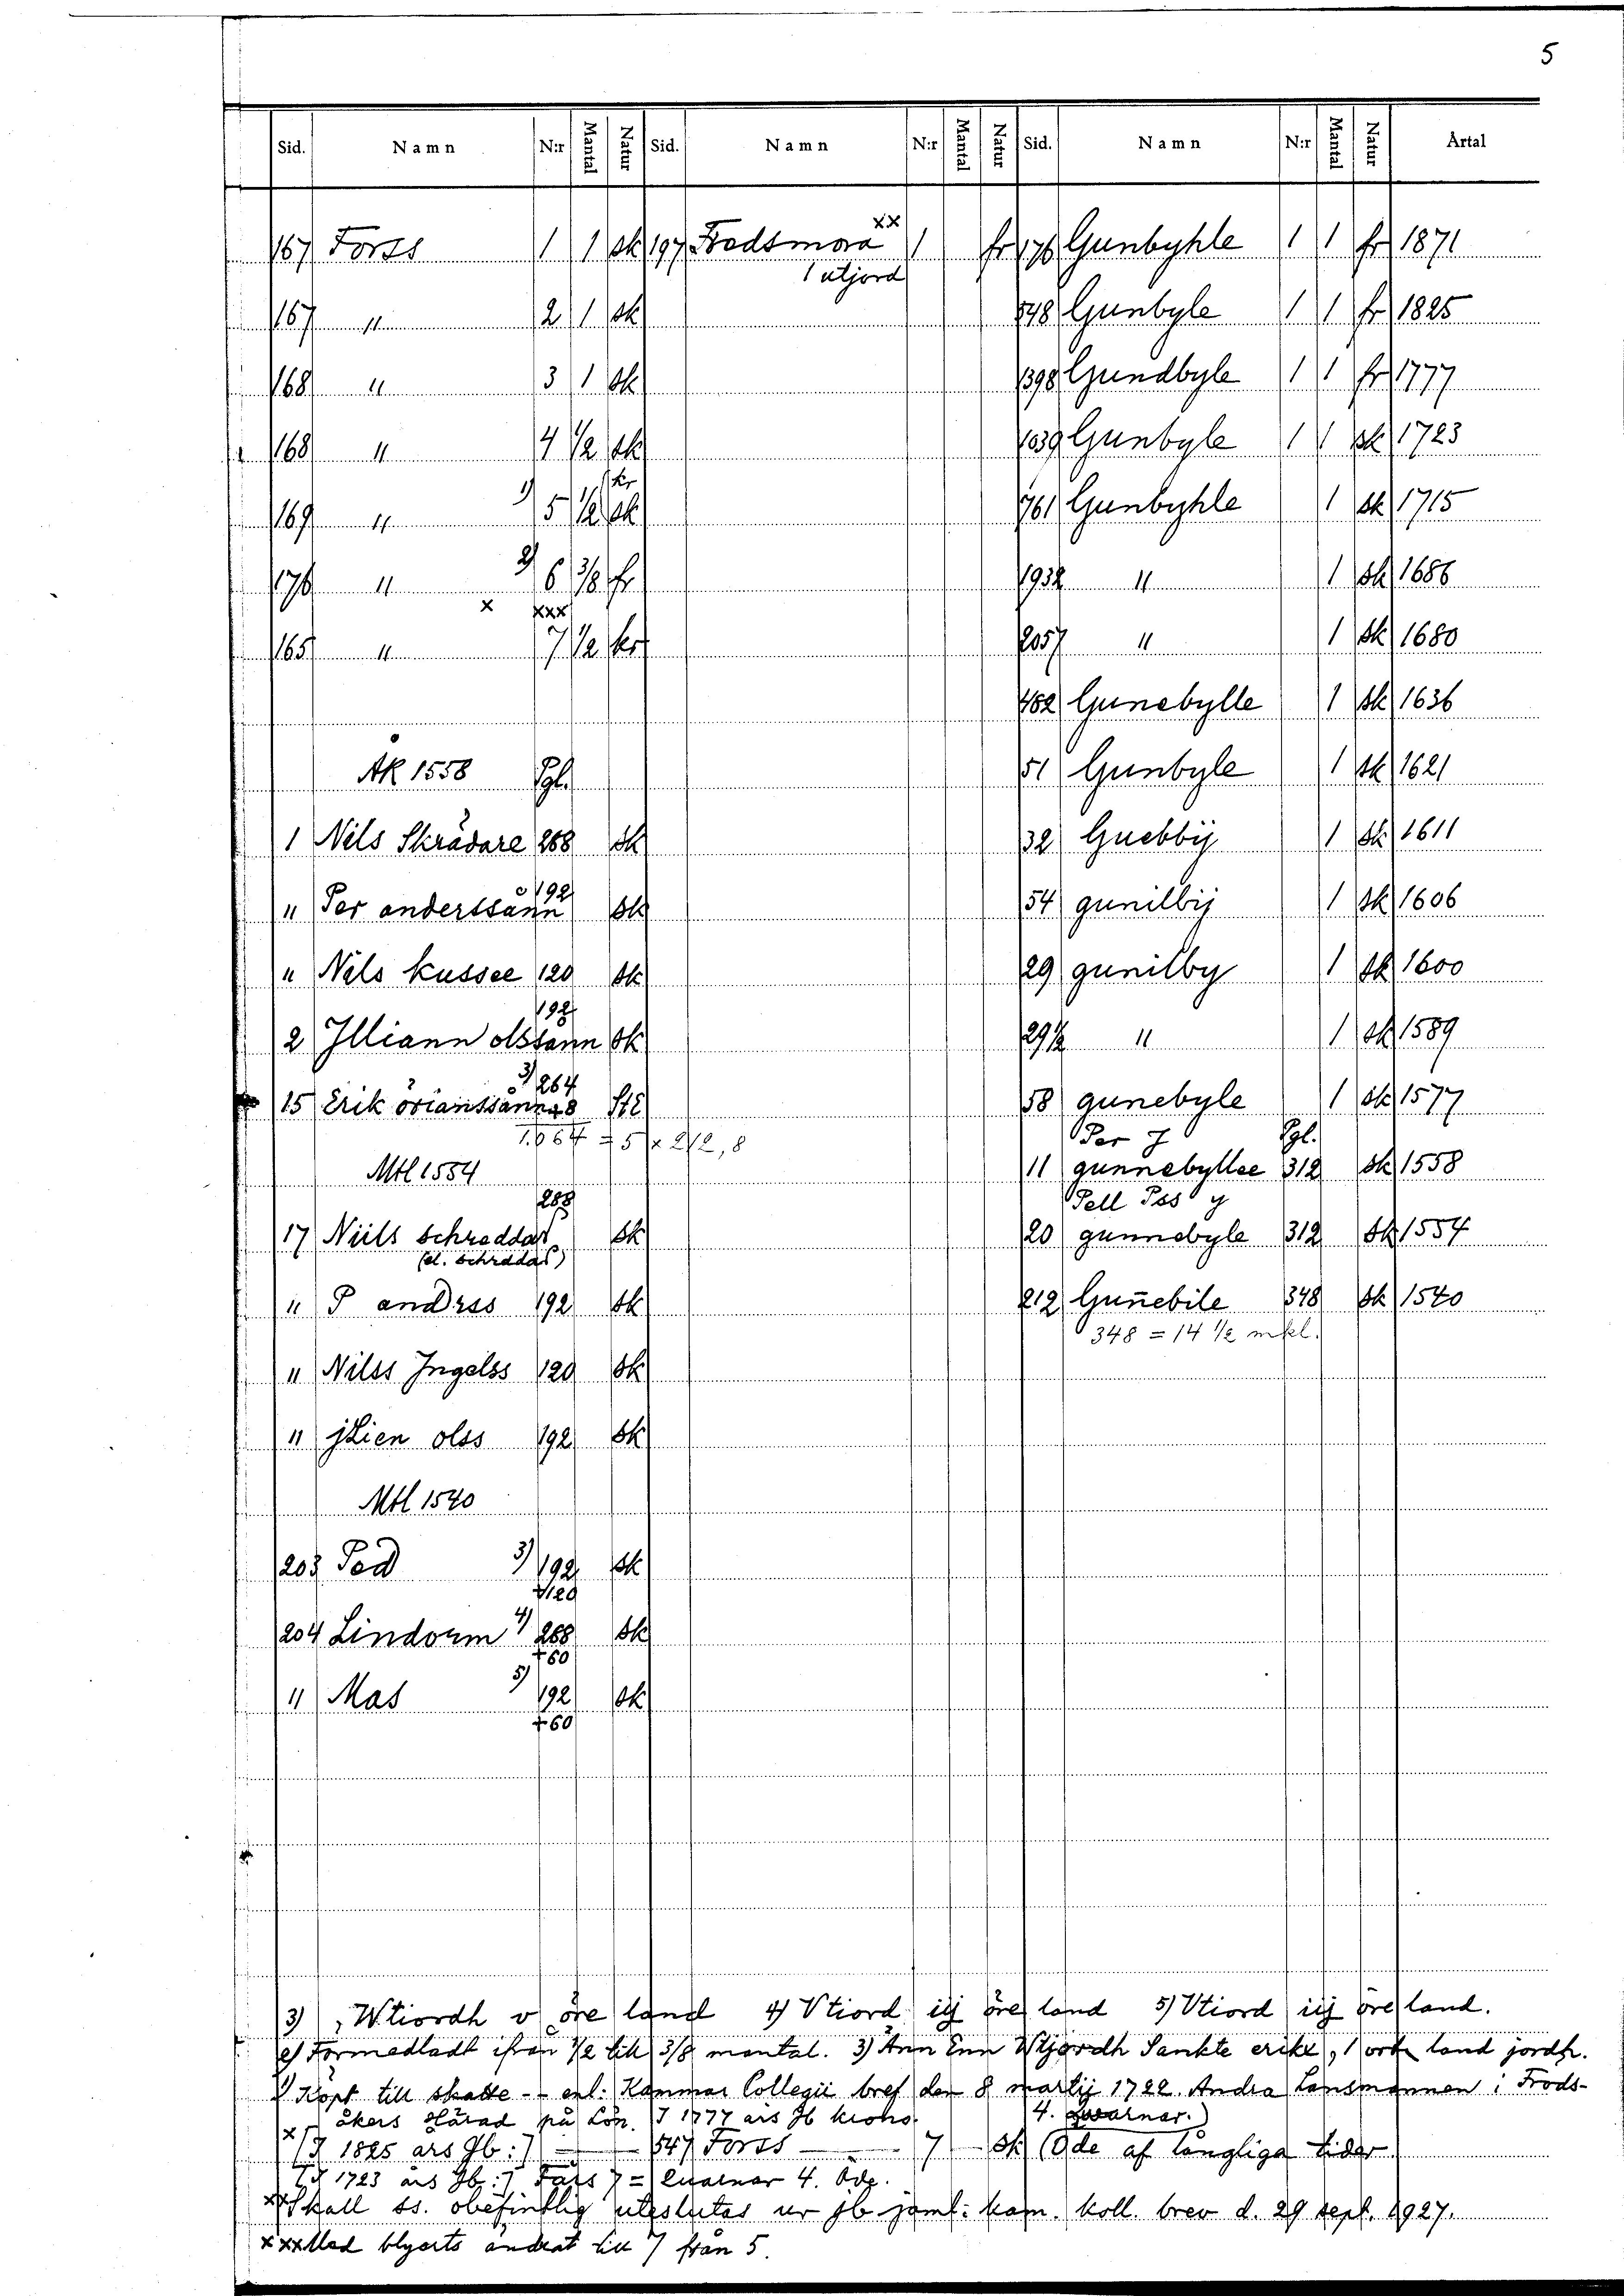 5
Sid. Namn N:r Mantal Natur Sid. Namn N:r Mantal Natur Sid. Namn N:r Mantal Natur Årtal
167 Forss 1 1 sk 197 Frodsmora xx 1 fr 176 Gunbyhle 1 1 fr 1871
1 utjord
167 " 2 1 sk 548 Gunbyle 1 1 fr 1825
168 " 3 1 sk 1398 Gundbyle 1 1 fr 1777
168 " 4 1/2 sk 1039 Gunbyle 1 1 sk 1723
169 " 1) 5 1/2 sk kr 761 Gunbyhle 1 sk 1715
176 " 2) 6 3/8 fr 1932 " 1 sk 1686
165 " x xxx 7 1/2 kr 2057 " 1 sk 1680
482 Gunebylle 1 sk 1636
AK 1558 Pgl. 51 Gunbyle 1 sk 1621
1 Nils Skrädare 288 sk 32 Guebbij 1 sk 1611
" Per anderssånn 192 sk 54 gunilbij 1 sk 1606
" Nils kussee 120 sk 29 gunilby 1 sk 1600
2 Jlliann olssann 192 sk 29 1/2 " 1 sk 1589
15 Erik örianssånn 3) 264 +8 StE 58 gunebyle 1 sk 1577
1.064 = 5 x 212,8 Per J Pgl.
Mtl 1554 11 gunnebyllee 312 sk 1558
288 Pell Pss y
17 Niils schreddar sk 20 gunnebyle 312 sk 1554
(el. schrddar)
" P andrss 192 sk 212 Guñebile 348 sk 1540
348 = 14 1/2 mkl.
" Nilss Jngelss 120 sk
" jlien olss 192 sk
Mtl 1540
203 Ped 3) 192 sk
+120
204 Lindorm 4) 288 sk
+60
" Mas 5) 192 sk
+60
3) Wtiordh v öre land 4) Vtiord iij öre land 5) Vtiord iij öre land.
2) Förmedladt ifrån 1/2 till 3/8 mantal. 3) Änn Enn Wtjordh Sankte erikx, 1 land jordh.
1) Köpt till skatte -- enl: Kammar Collegii bref den 8 martij 1722. Andra Länsmannen i Frods-
åkers Härad på Lön. J 1777 års Jb krono. 4.
x [J 1825 års Jb:] 547 Forss 7 sk (Öde af långliga tider
[J 1723 års Jb:] Fårs 7 = Quarnar 4. Öde.
xx Skall ss. obefintlig uteslutas ur jb jäml: kam. koll. brev d. 29 sept. 1927.
xxx Med blyerts ändrat till 7 från 5.